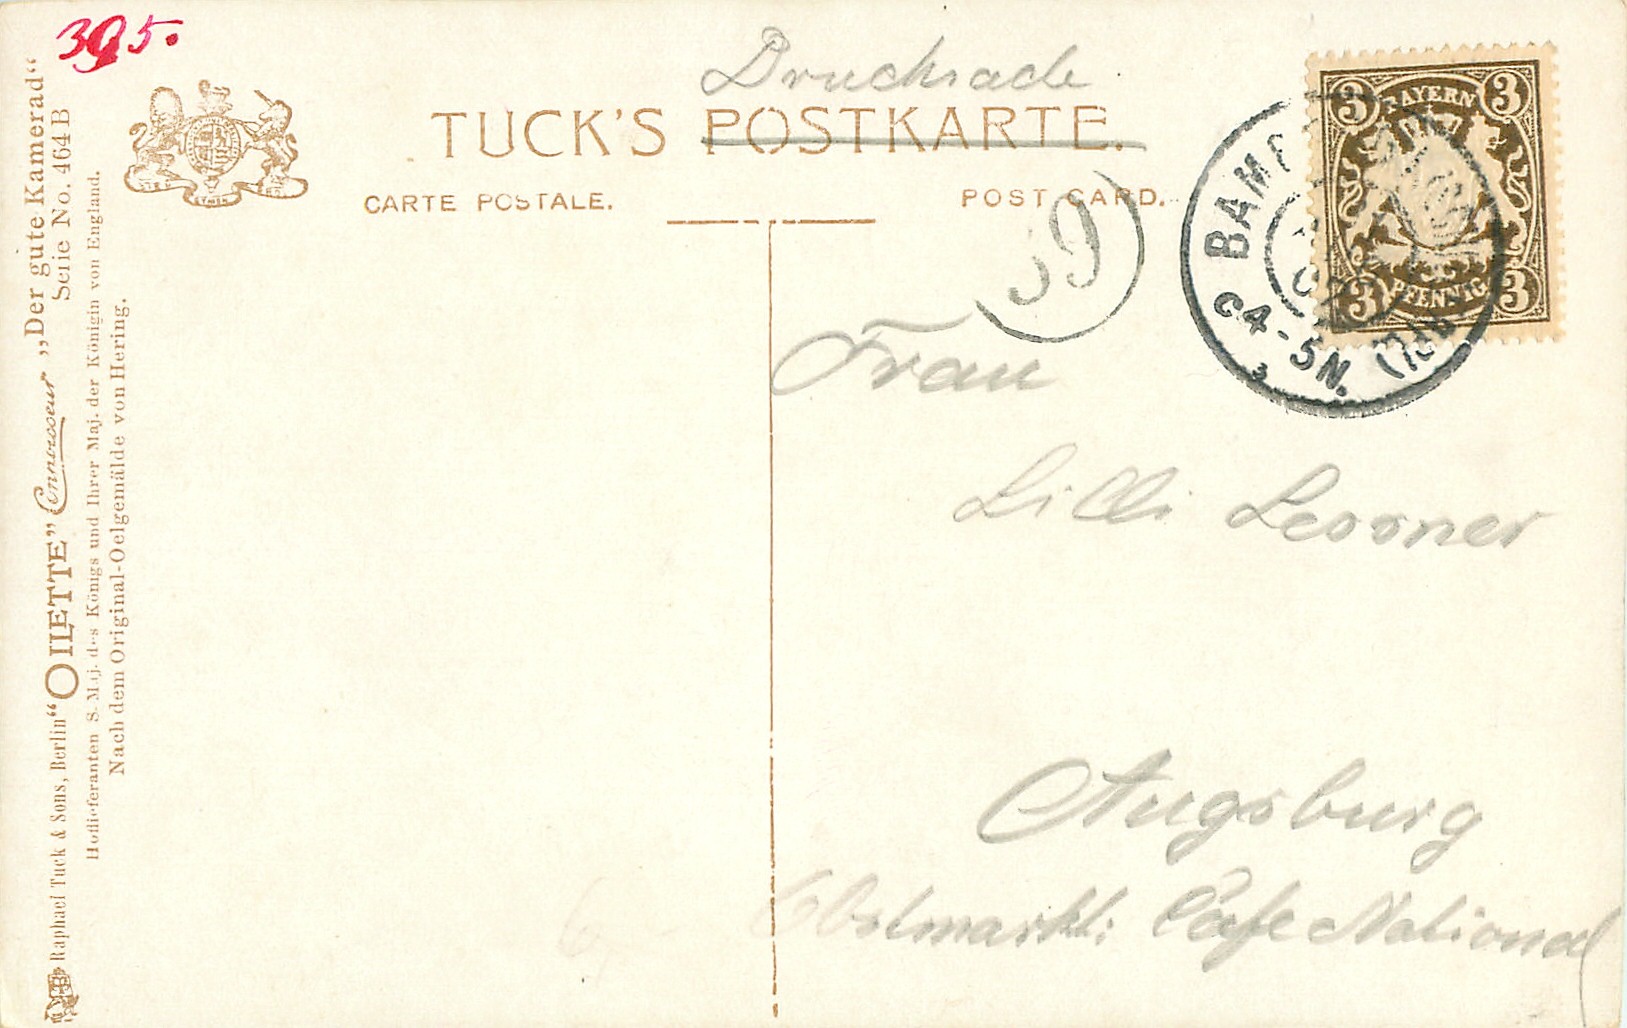 395.
Drucksache
TUCK'S POSTKARTE.
CARTE POSTALE.
POST CARD.
BAYERN
3 3
3 PFENNIG 3
BAMB
C4-5N. (BHF.
39
Frau
Lilli Lessner
Augsburg
Obstmarkt: Cafe National
Raphael Tuck & Sons, Berlin “OILETTE” Connoisseur „Der gute Kamerad“
Serie No. 464 B
Hoflieferanten S. Maj. des Königs und Ihrer Maj. der Königin von England.
Nach dem Original-Oelgemälde von Hering.